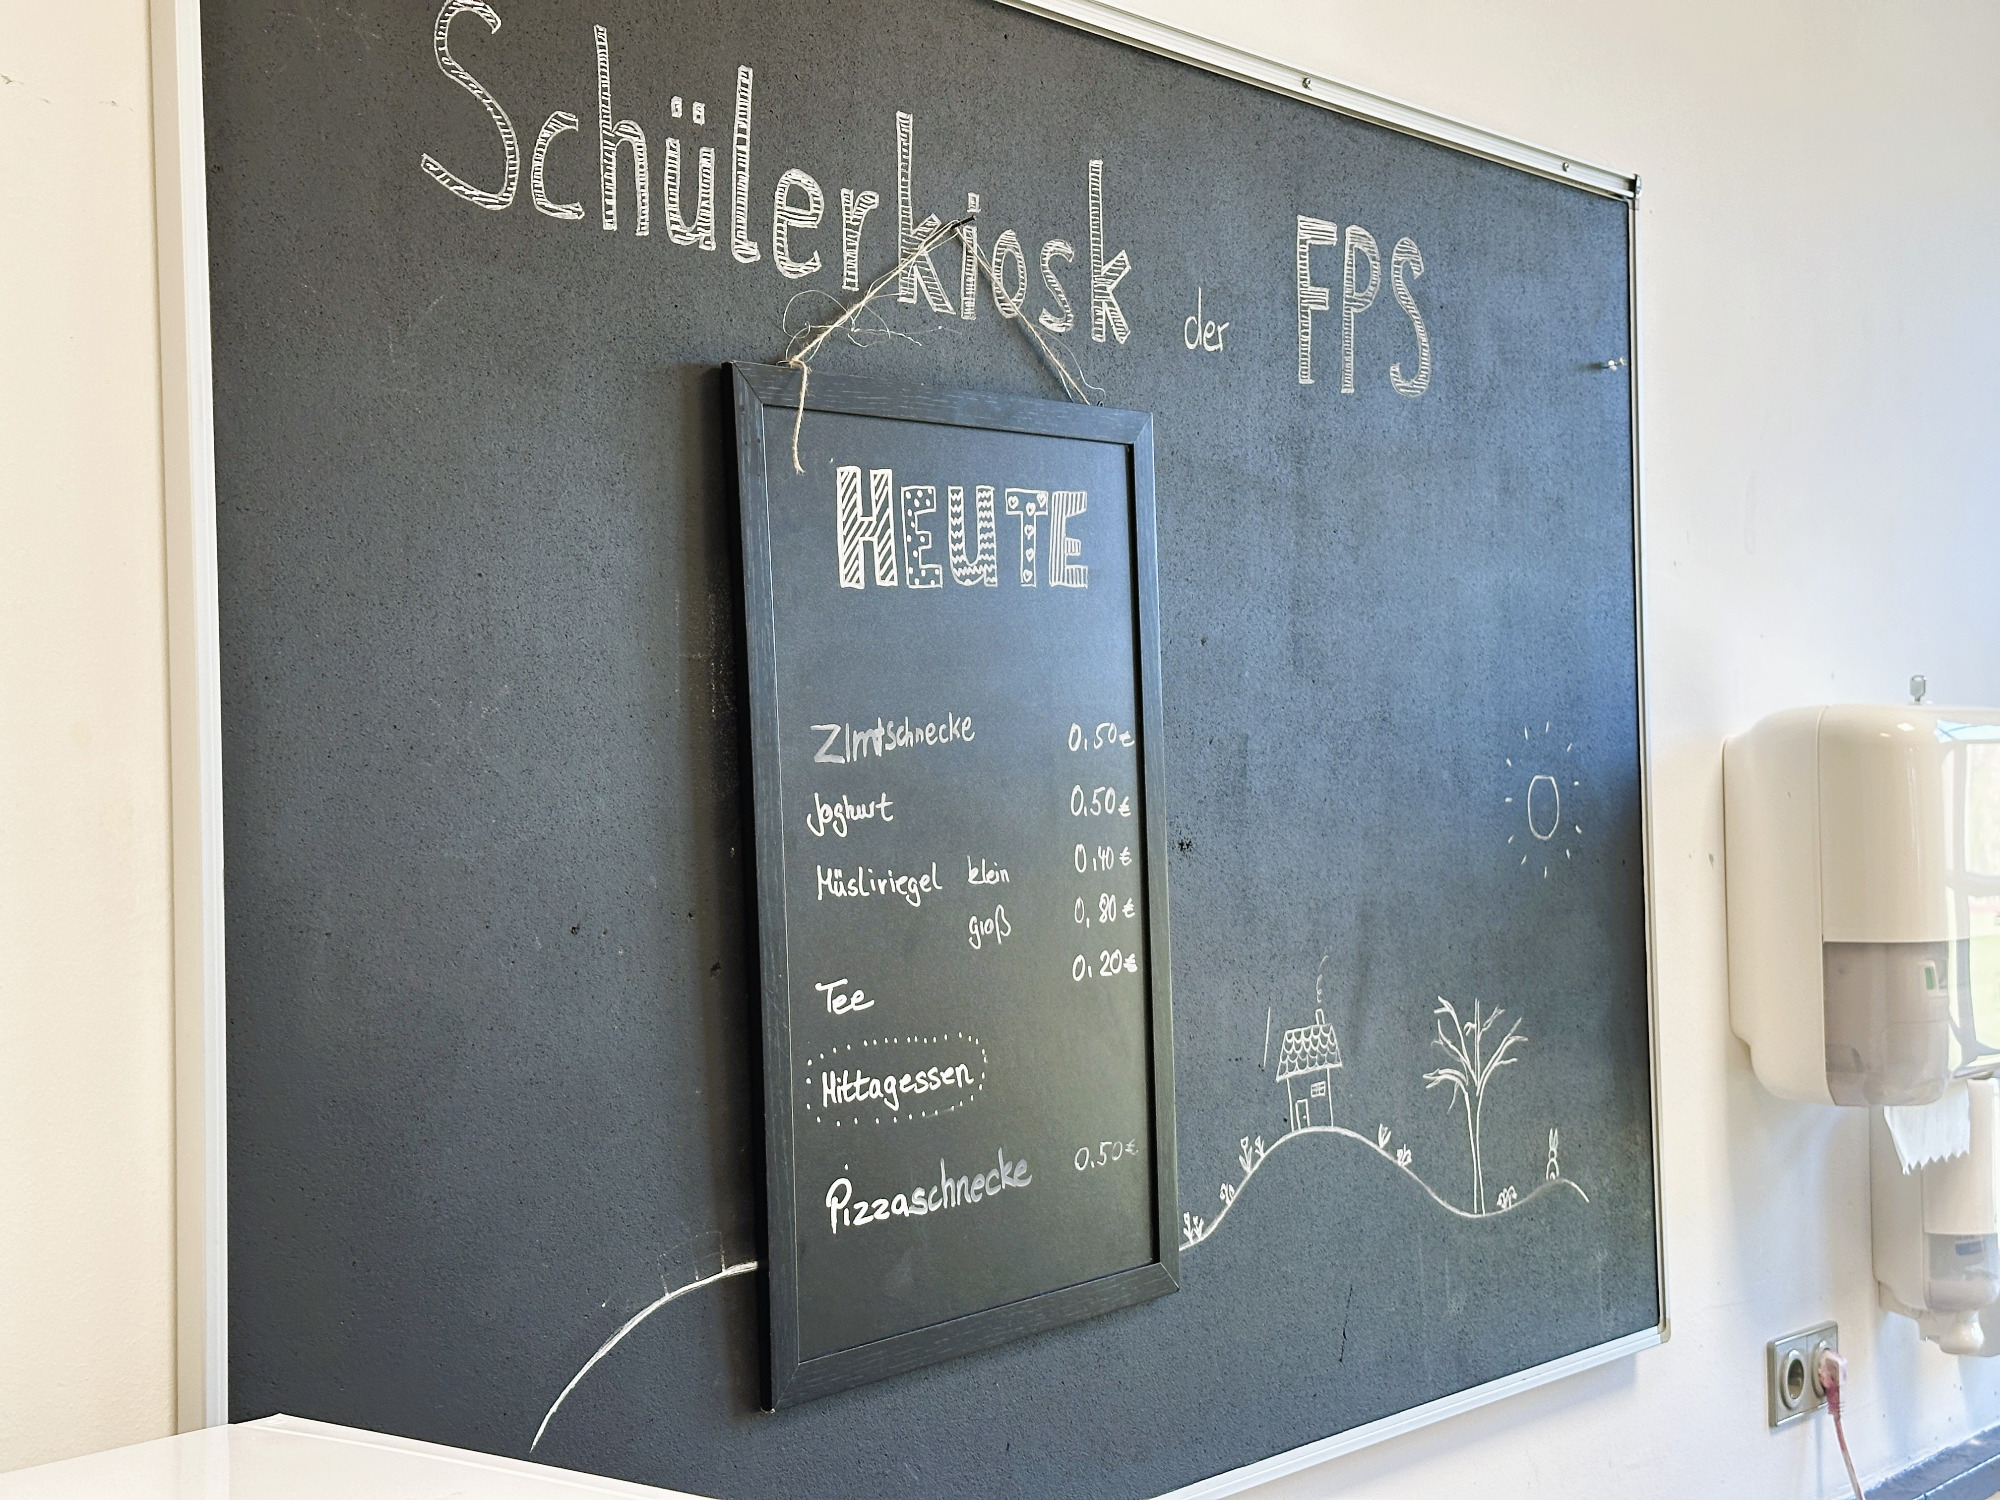 Schülerkiosk der FPS
HEUTE
Zimtschnecke 0,50€
Joghurt 0,50€
Müsliriegel klein 0,40€
groß 0,80€
Tee 0,20€
Mittagessen
Pizzaschnecke 0,50€